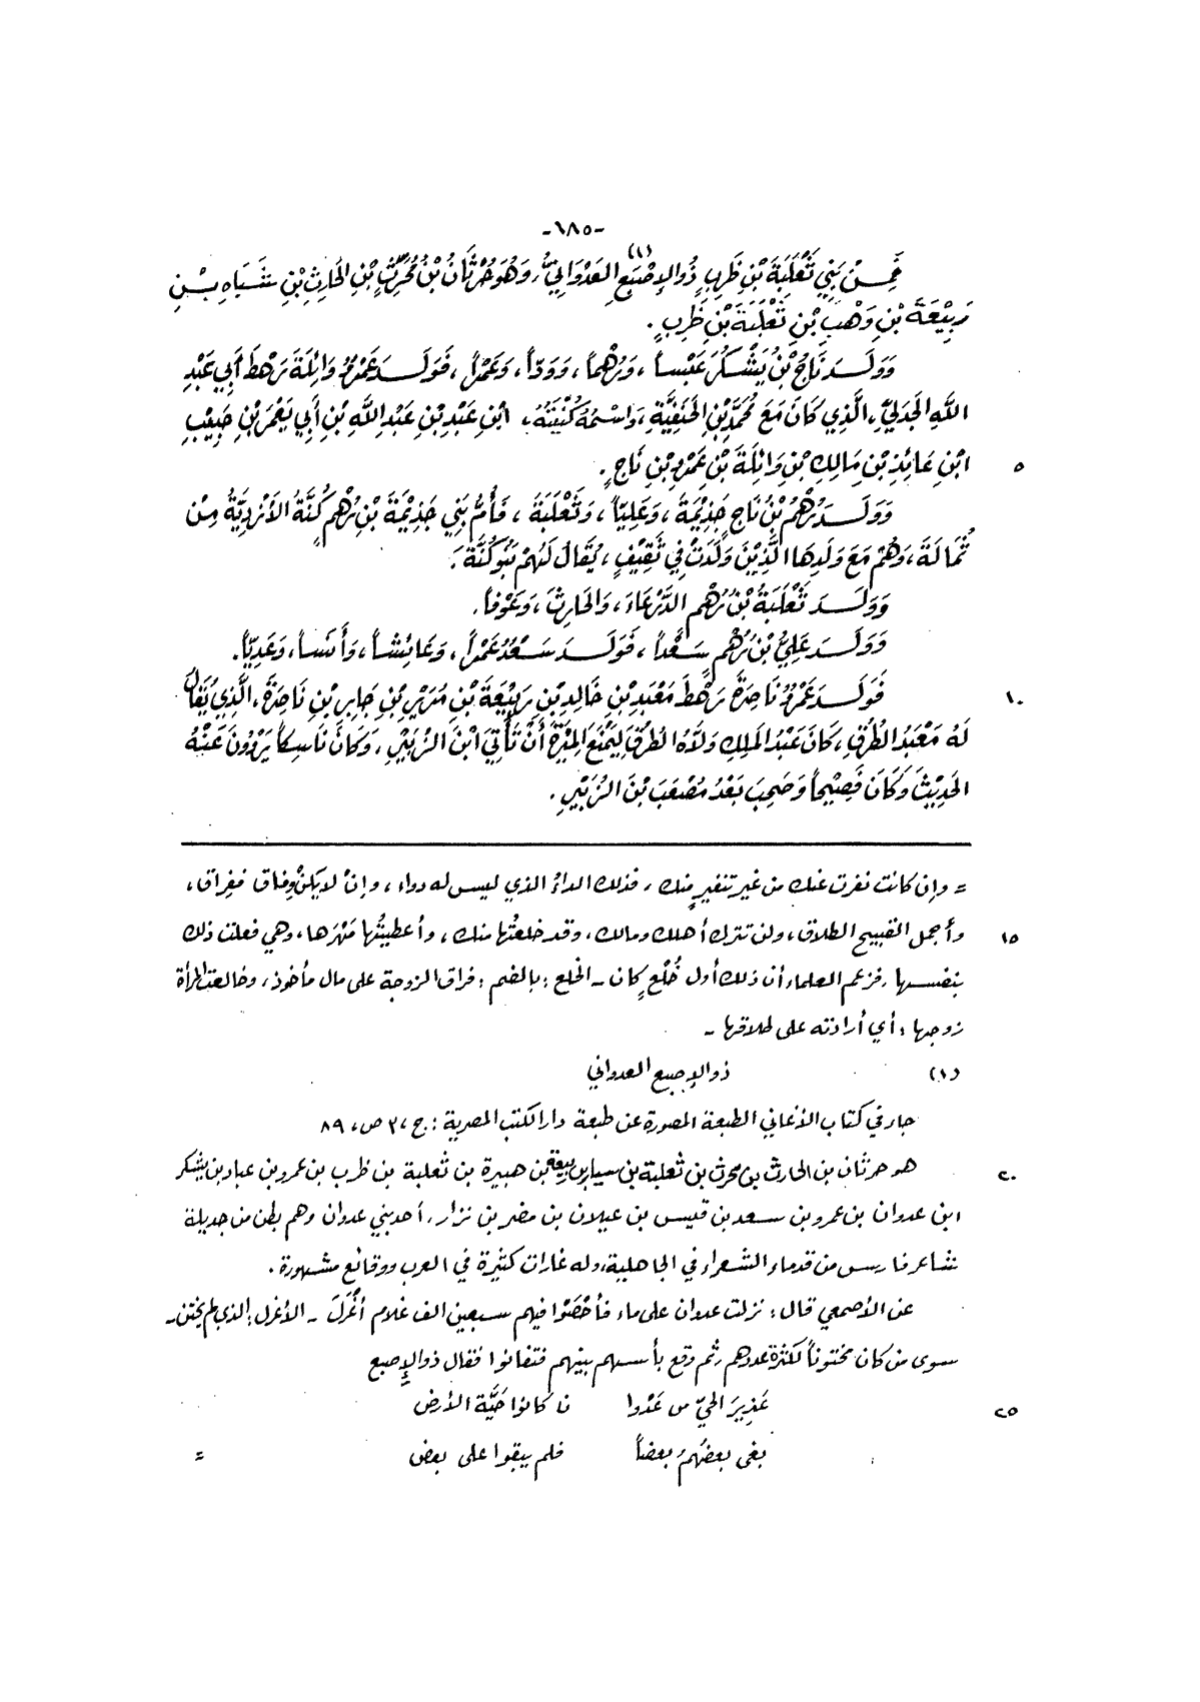 -١٨٥-
فَمِنْ بَنِي ثَعْلَبَةَ بْنِ ظَرِبٍ ذُو الإِصْبَعِ (١) العَدْوَانِيُّ، وَهُوَ حُرْثَانُ بْنُ مُحَرِّثِ بْنِ الحَارِثِ بْنِ شَبَاهِ بْنِ
رَبِيْعَةَ بْنِ وَهْبِ بْنِ ثَعْلَبَةَ بْنِ ظَرِبٍ.
وَوَلَدَ نَاجُ بْنُ يَشْكُرَ عَبْساً، وَرُهْماً، وَوَدّاً، وَعَمْراً، فَوَلَدَ عَمْرٌو وَائِلَةَ رَهْطَ أَبِي عَبْدِ
اللَّهِ الجَدَلِيِّ، الَّذِي كَانَ مَعَ مُحَمَّدِ بْنِ الحَنَفِيَّةِ، وَاسْمُهُ كُنْيَتُهُ، ابْنِ عَبْدِ بْنِ عَبْدِ اللَّهِ بْنِ أَبِي يَعْمَرَ بْنِ حَبِيْبِ
٥ ابْنِ عَائِذِ بْنِ مَالِكِ بْنِ وَائِلَةَ بْنِ عَمْرِو بْنِ نَاجٍ.
وَوَلَدَ رُهْمُ بْنُ نَاجٍ جَذِيْمَةَ، وَعَلِيّاً، وَثَعْلَبَةَ، فَأُمُّ بَنِي جَذِيْمَةَ بْنِ رُهْمٍ كُنَّةُ الأَزْدِيَّةُ مِنْ
ثُمَالَةَ، وَهُمْ مَعَ وَلَدِهَا الَّذِيْنَ وَلَدَتْ فِي ثَقِيْفٍ، يُقَالُ لَهُمْ بَنُو كُنَّةَ.
وَوَلَدَ ثَعْلَبَةُ بْنُ رُهْمٍ الدَّرْعَاءَ، وَالحَارِثَ، وَعَوْفاً.
وَوَلَدَ عَلِيُّ بْنُ رُهْمٍ سَعْداً، فَوَلَدَ سَعْدٌ عَمْراً، وَعَائِشاً، وَأَنَساً، وَعَدِيّاً.
١٠ فَوَلَدَ عَمْرٌو نَاصِرَةَ رَهْطَ مَعْبَدِ بْنِ خَالِدِ بْنِ رَبِيْعَةَ بْنِ مُرَيْنِ بْنِ جَابِرِ بْنِ نَاصِرَةَ، الَّذِي يُقَالُ
لَهُ مَعْبَدُ الطُّرُقِ، كَانَ عَبْدُ المَلِكِ وَلاَّهُ الطُّرُقَ لِيَمْنَعَ المِيْرَةَ أَنْ تَأْتِيَ ابْنَ الزُّبَيْرِ، وَكَانَ نَاسِكاً يَرْوُونَ عَنْهُ
الحَدِيْثَ وَكَانَ فَصِيْحاً وَصَحِبَ بَعْدُ مُصْعَبَ بْنَ الزُّبَيْرِ.
= وإن كانت نفرت عنك من غير تنفير منك، فذلك الداء الذي ليس له دواء، وإن لايكن وفاق ففراق،
١٥ وأجمل القبيح الطلاق، ولن تترك أهلك ومالك، وقد خلعتُها منك، وأعطيتُها مَهْرَها، وهي فعلت ذلك
بنفسها، فزعم العلماء أن ذلك أول خُلْعٍ كان - الخلع: بالضم: فراق الزوجة على مال مأخوذ، وخالعت المرأة
زوجها: أي أرادته على طلاقها -
(١) ذو الإصبع العدواني
جاء في كتاب الأغاني الطبعة المصورة عن طبعة دار الكتب المصرية: ج، ٣ ص، ٨٩
٢٠ هو حرثان بن الحارث بن محرث بن ثعلبة بن سيار بن ربيعة بن هبيرة بن ثعلبة بن ظرب بن عمرو بن عباد بن يشكر
ابن عدوان بن عمرو بن سعد بن قيس بن عيلان بن مضر بن نزار، أحد بني عدوان وهم بطن من جديلة
شاعر فارس من قدماء الشعراء في الجاهلية، وله غارات كثيرة في العرب ووقائع مشهورة.
عن الأصمعي قال: نزلت عدوان على ماء فأحْصَوْا فيهم سبعين الف غلام أغْرَلَ - الأغرل: الذي لم يختن -
سوى من كان مختوناً لكثرة عددهم، ثم وقع بأسهم بينهم فتفانوا فقال ذو الإصبع
٢٥ عَذِيرَ الحيّ من عَدْوا ن كانوا حَيَّة الأرض
بغى بعضُهُم بعضاً فلم يبقوا على بعض =